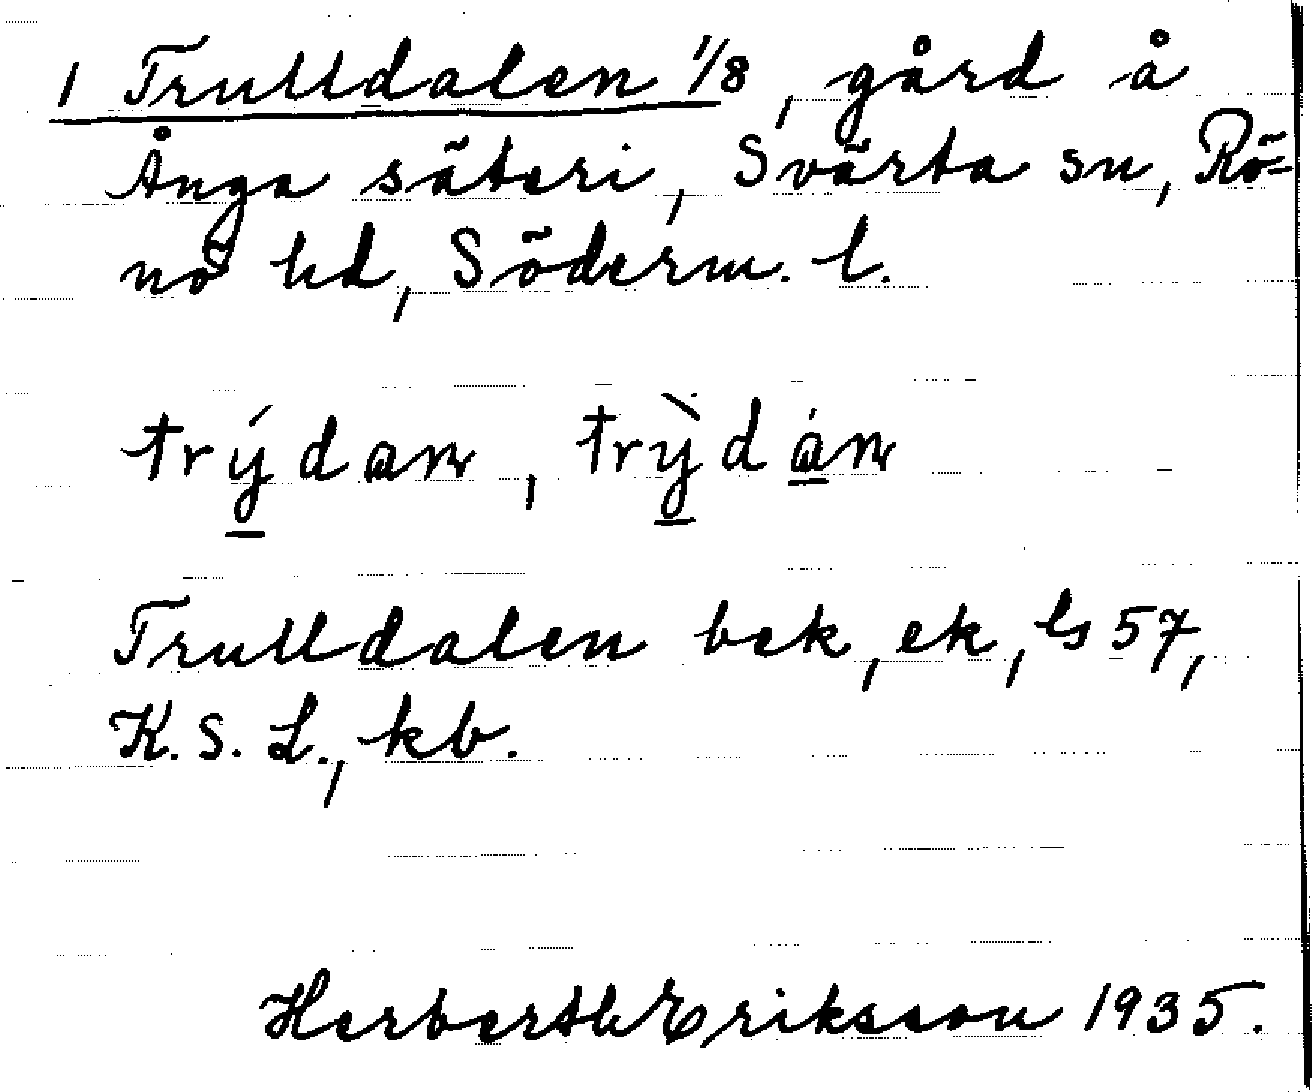 1 Trulldalen 1/8, gård å
Ånga säteri, Svärta sn, Rö-
nö hd, Söderm. l.
trýdan, trỳdán
Trulldalen bek, ek, ls 57,
K. S. L., kb.
Herberth Eriksson 1935.